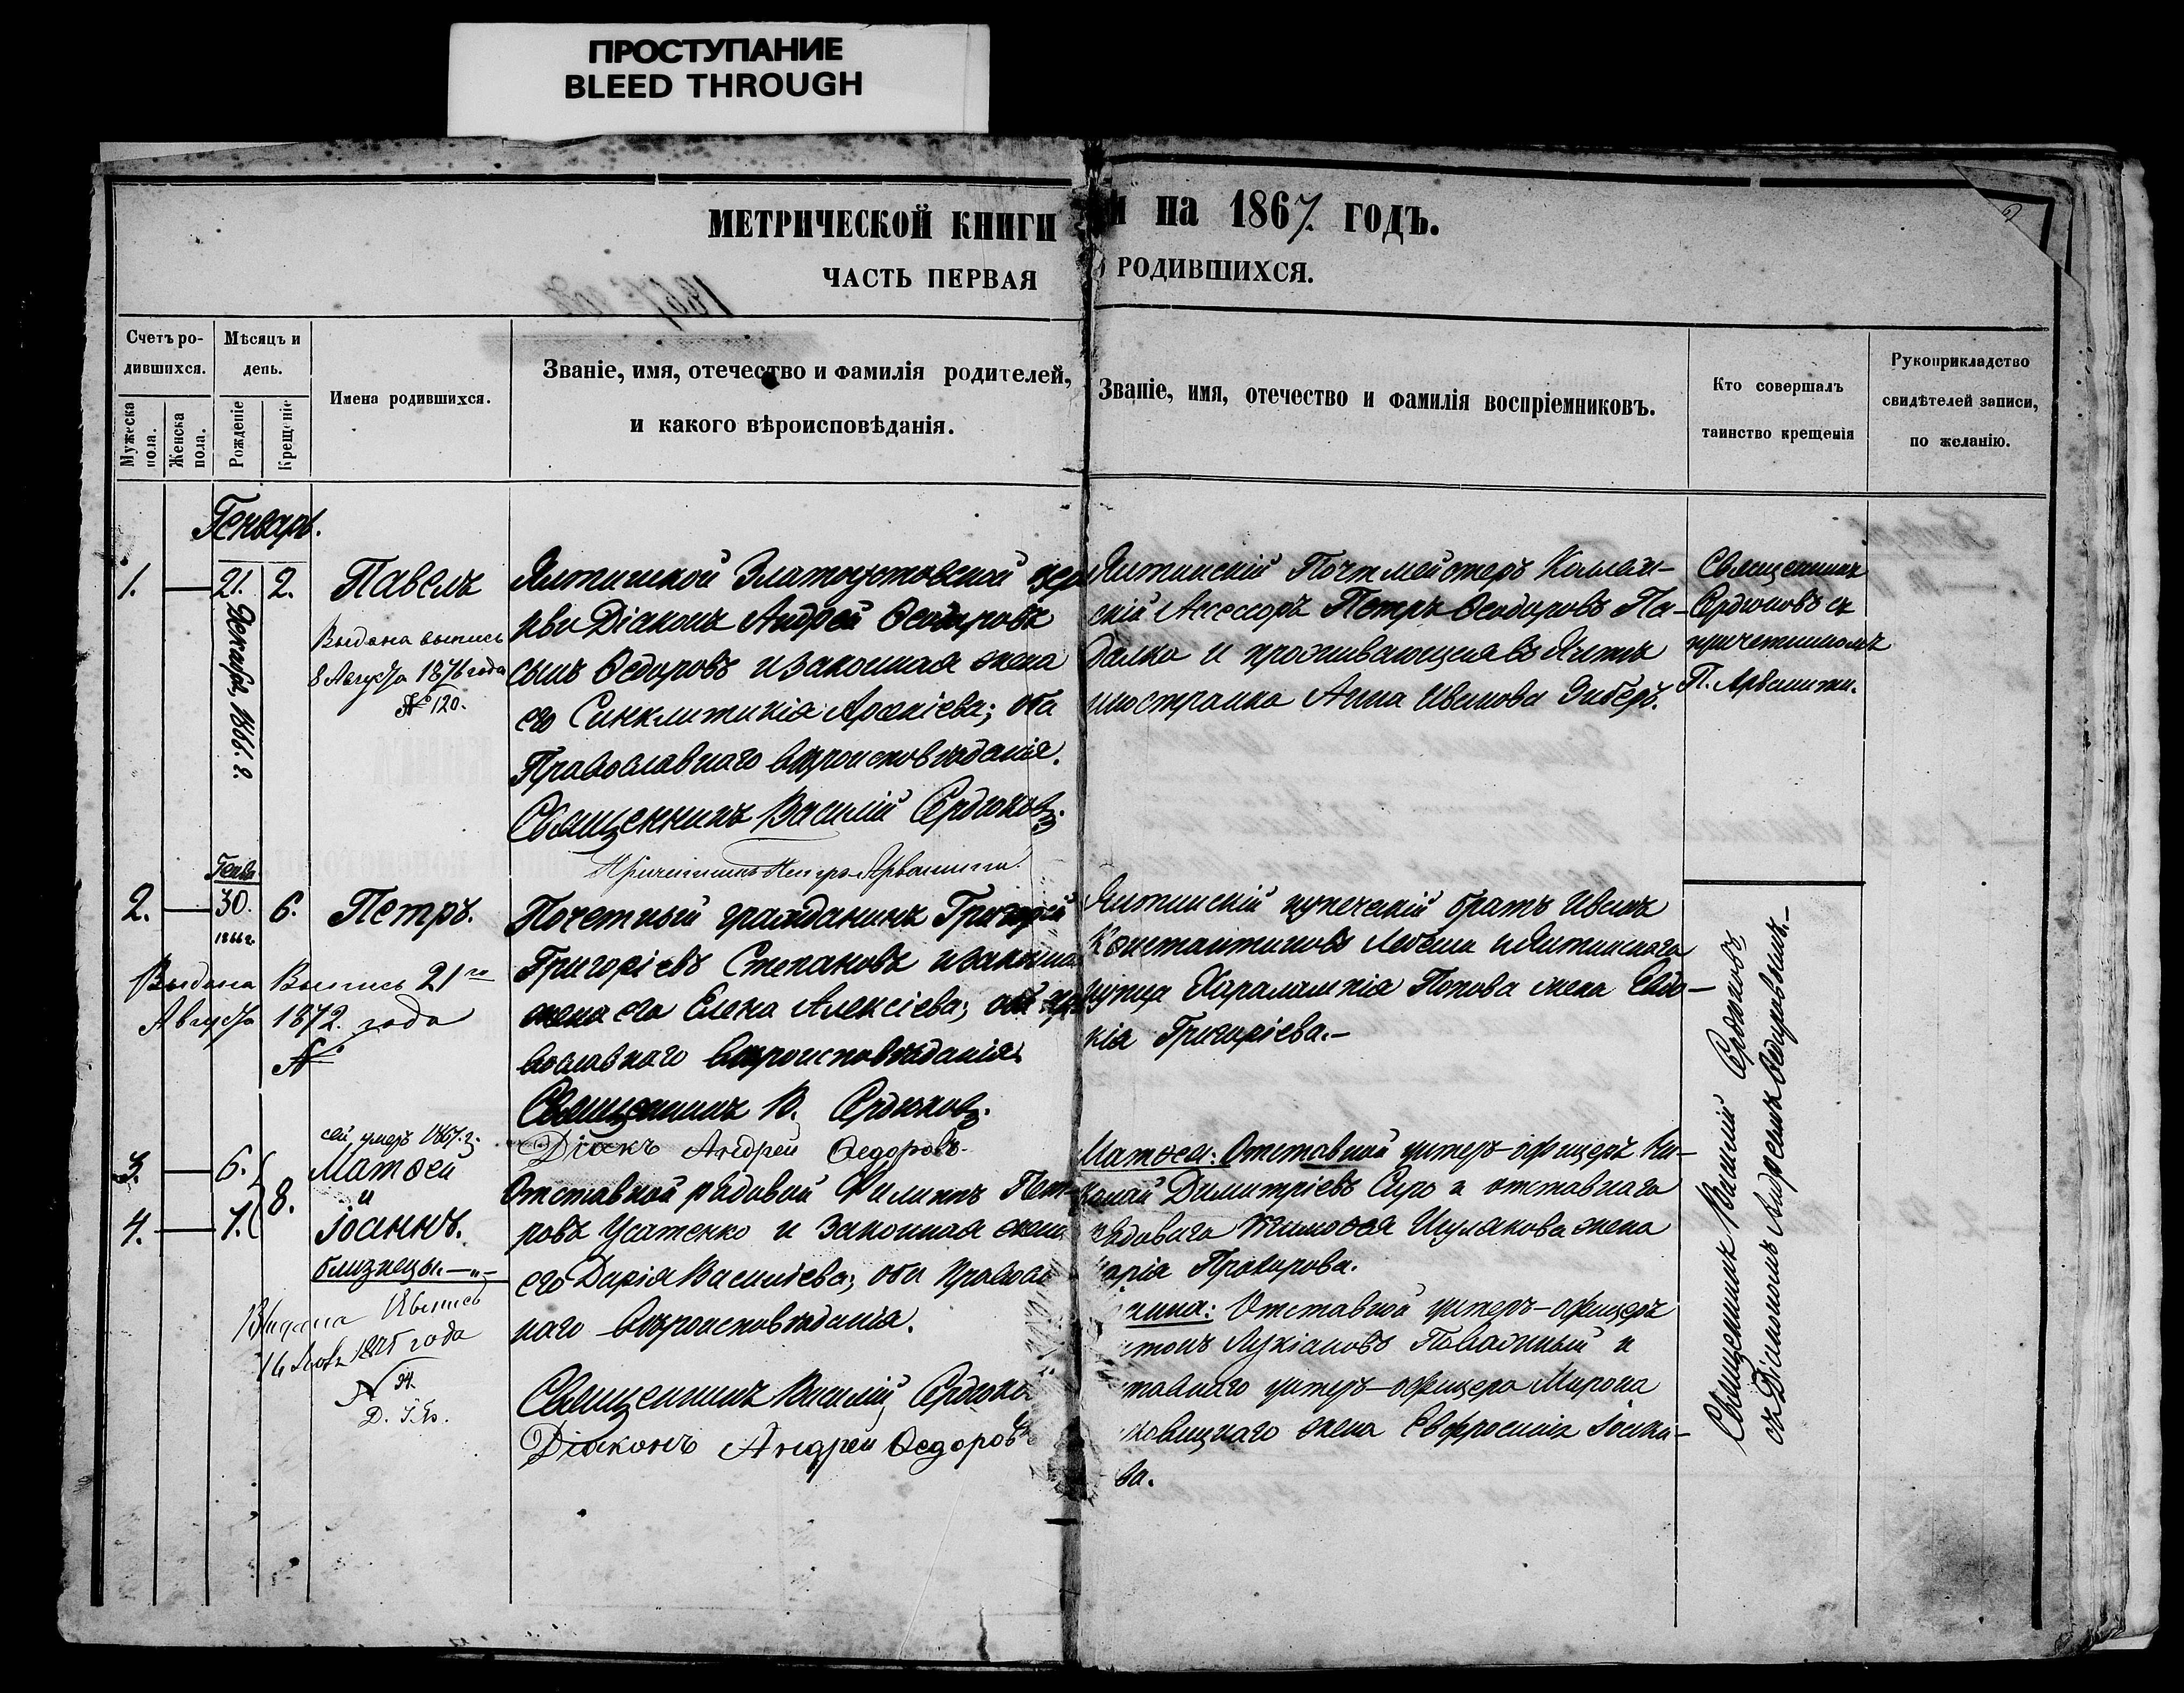 ПРОСТУПАНИЕ
BLEED THROUGH
МЕТРИЧЕСКОЙ КНИГИ на 1867. ГОДЪ.
ЧАСТЬ ПЕРВАЯ РОДИВШИХСЯ.
Счетъ ро-
дившихся.
Мужеска
пола.
Женска
пола.
Мѣсяцъ и
день.
Рожденіе
Крещеніе
Имена родившихся.
Званіе, имя, отечество и фамилія родителей,
и какого вѣроисповѣданія.
Званіе, имя, отечество и фамилія воспріемниковъ.
Кто совершалъ
таинство крещенія
Рукоприкладство
свидѣтелей записи,
по желанію.
Генварь.
1. — 21. 2.
Декабря, 1866. г.
Павелъ
Выдана выпись
8 Августа 1876 года
№ 120.
Ялтинской Златоустовской цер-
кви Діаконъ Андрей Ѳеодоровъ
сынъ Ѳедоровъ и законная жена
его Синклитикія Арсеніева; оба
Православнаго вѣроисповѣданія.
Священникъ Василій Сердюковъ.
Причетникъ Петръ Арванити
Ялтинскій Почтмейстеръ Коллеж-
скій Ассесоръ Петръ Ѳеодоровъ Па-
далка и проживающая въ Ялтѣ
иностранка Анна Иванова
Священникъ
Сердюковъ съ
причетникомъ
П. Арванити.
Генва.
2. — 30. 6.
1866 г.
Петръ.
Выдана Выпись 21го
Августа 1872. года
№
Почетный гражданинъ Григорій
Григоріевъ Степановъ и законная
жена его Елена Алексіева; оба пра-
вославнаго вѣроисповѣданія.
Священникъ В. Сердюковъ.
Діакнъ Андрей Ѳедоровъ
Ялтинскій купеческій братъ Иванъ
Константиновъ и Ялтинскаго
купца Харалампія Попова жена Евдо-
кія Григоріева.—
сей умеръ 1867. г.
3. — 6.
8.
4. — 7.
Матѳей
и
Іоаннъ.
близнецы.—"—
Выдана Выпись
1875 года
№ 94.
Отставной рядовой Филиппъ Пет-
ровъ Усатенко и законная жена
его Дарія Васильева; оба православ
наго вѣроисповѣданія.
Священникъ Василій Сердюко
Діаконъ Андрей Ѳедоровъ
Матѳея: Отставной унтеръ-офицеръ Ни-
колай Димитріевъ Сиро и отставнаго
рядоваго Тимоѳея Шулякова жена
арія Прохорова.
Отставной унтеръ-офицеръ
Лукіановъ и
тавнаго унтеръ-офицера Мирона
жена Евфросинія Іоаки-
ва.
Священникъ Василій Сердюковъ
съ Діакономъ Андреемъ Ѳедоровымъ.—